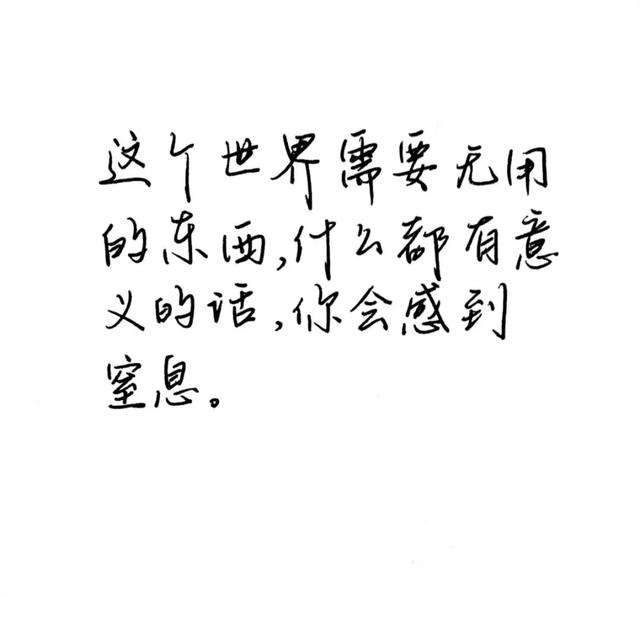 这个世界需要无用
的东西,什么都有意
义的话,你会感到
窒息。